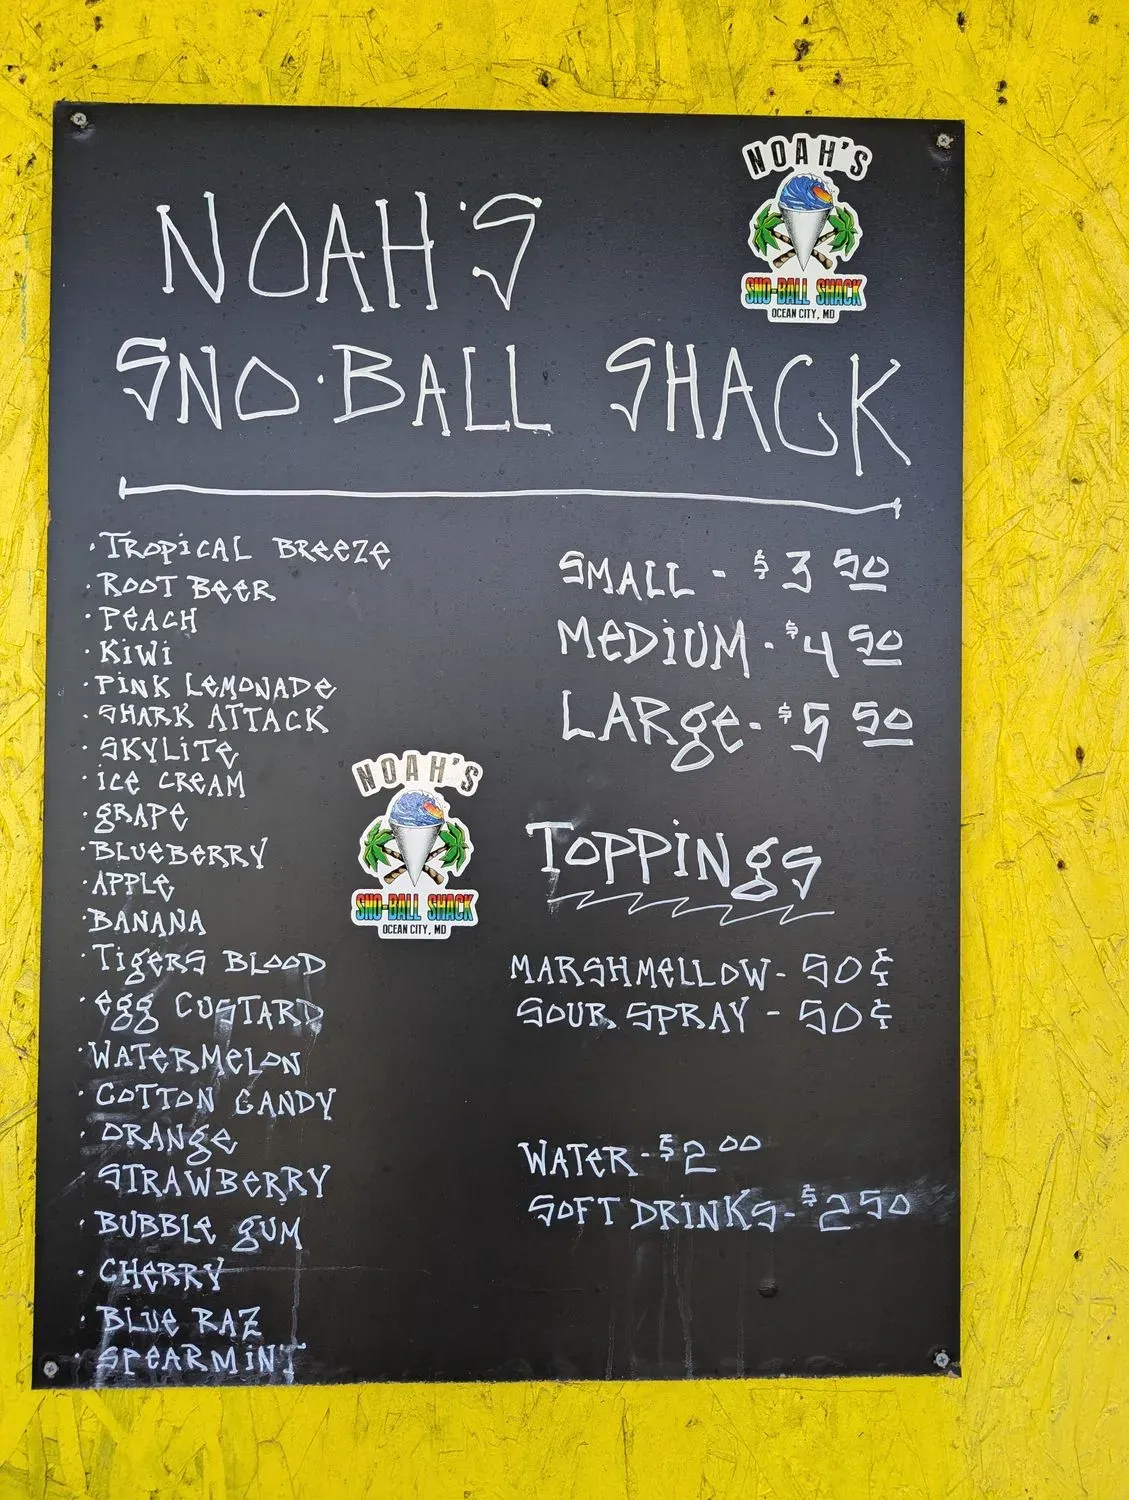 NOAH'S
SNO-BALL SHACK
OCEAN CITY, MD
NOAH'S
SNO·BALL SHACK
·TROPiCAL BReeZe
·ROOT BeeR
·PeACH
·KiWi
·PiNK LeMONADe
·SHARK ATTACK
·SKYLiTe
·iCe CReAM
·gRAPe
·BLUeBeRRY
·APPLe
·BANANA
·TigeRS BLOOD
·egg CUSTARD
·WATeRMeLON
·COTTON CANDY
·ORANge
·STRAWBeRRY
·BUBBLe gUM
·CHeRRY
·BLUe RAZ
·SPeARMiNT
NOAH'S
SNO-BALL SHACK
OCEAN CITY, MD
SMALL - $3 50
MeDiUM - $4 50
LARge - $5 50
TOPPiNgS
MARSHMeLLOW - 50¢
SOUR SPRAY - 50¢
WATeR - $2 00
SOFT DRiNKS - $2 50